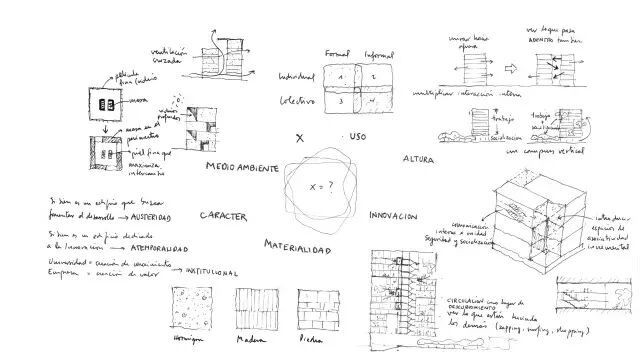 ventilación
cruzada
película
fina (vidrio)
masa
masa en el
perímetro
piel fina que
maximiza
intercambio
vidrios
profundos
MEDIO AMBIENTE
Formal Informal
Individual 1 2
Colectivo 3 4
X USO
mirar hacia
afuera
ver lo que pasa
ADENTRO también
multiplicar interacción interna
trabajo
socialización
trabajo
un campus vertical
ALTURA
X = ?
Si bien es un edificio que busca
fomentar el desarrollo → AUSTERIDAD
Si bien es un edificio dedicado
a la Innovación → ATEMPORALIDAD
Universidad = creación de conocimiento
Empresa = creación de valor → INSTITUCIONAL
CARACTER
INNOVACION
MATERIALIDAD
Hormigon
Madera
Piedra
comunicación
interna o unidad
Seguridad y socialización
introducir
espacios de
asociatividad
incremental
CIRCULACION como lugar de
DESCUBRIMIENTO
ver lo que están haciendo
los demás (zapping, surfing, shopping)